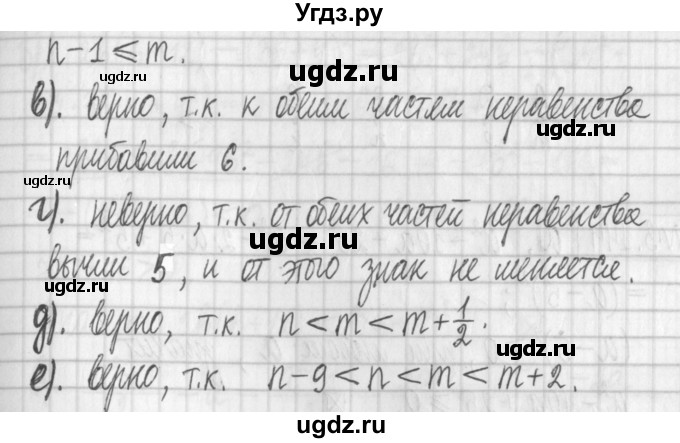 Угдз.ру
n-1⩽m.
в). верно, т.к. к обеим частям неравенства
прибавили 6.
г). неверно, т.к. от обеих частей неравенства
вычли 5, и от этого знак не меняется.
д). верно, т.к. n<m<m+1/2.
е). верно, т.к. n-9<n<m<m+2.
ugdz.ru
ugdz.ru
ugdz.ru
ugdz.ru
ugdz.ru
ugdz.ru
ugdz.ru
ugdz.ru
ugdz.ru
ugdz.ru
ugdz.ru
ugdz.ru